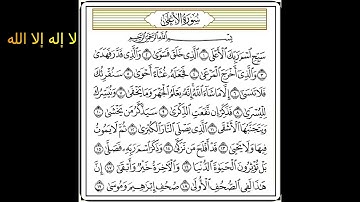 سُورَةُ الأَعْلَى
بِسْمِ اللَّهِ الرَّحْمَٰنِ الرَّحِيمِ
سَبِّحِ اسْمَ رَبِّكَ الْأَعْلَى ١ الَّذِي خَلَقَ فَسَوَّىٰ ٢ وَالَّذِي قَدَّرَ فَهَدَىٰ
٣ وَالَّذِي أَخْرَجَ الْمَرْعَىٰ ٤ فَجَعَلَهُ غُثَاءً أَحْوَىٰ ٥ سَنُقْرِئُكَ
فَلَا تَنسَىٰ ٦ إِلَّا مَا شَاءَ اللَّهُ إِنَّهُ يَعْلَمُ الْجَهْرَ وَمَا يَخْفَىٰ ٧ وَنُيَسِّرُكَ
لِلْيُسْرَىٰ ٨ فَذَكِّرْ إِن نَّفَعَتِ الذِّكْرَىٰ ٩ سَيَذَّكَّرُ مَن يَخْشَىٰ ١٠
وَيَتَجَنَّبُهَا الْأَشْقَى ١١ الَّذِي يَصْلَى النَّارَ الْكُبْرَىٰ ١٢ ثُمَّ لَا يَمُوتُ
فِيهَا وَلَا يَحْيَىٰ ١٣ قَدْ أَفْلَحَ مَن تَزَكَّىٰ ١٤ وَذَكَرَ اسْمَ رَبِّهِ فَصَلَّىٰ ١٥
بَلْ تُؤْثِرُونَ الْحَيَوٰةَ الدُّنْيَا ١٦ وَالْآخِرَةُ خَيْرٌ وَأَبْقَىٰ ١٧ إِنَّ
هَٰذَا لَفِي الصُّحُفِ الْأُولَىٰ ١٨ صُحُفِ إِبْرَاهِيمَ وَمُوسَىٰ ١٩
لا إله إلا الله